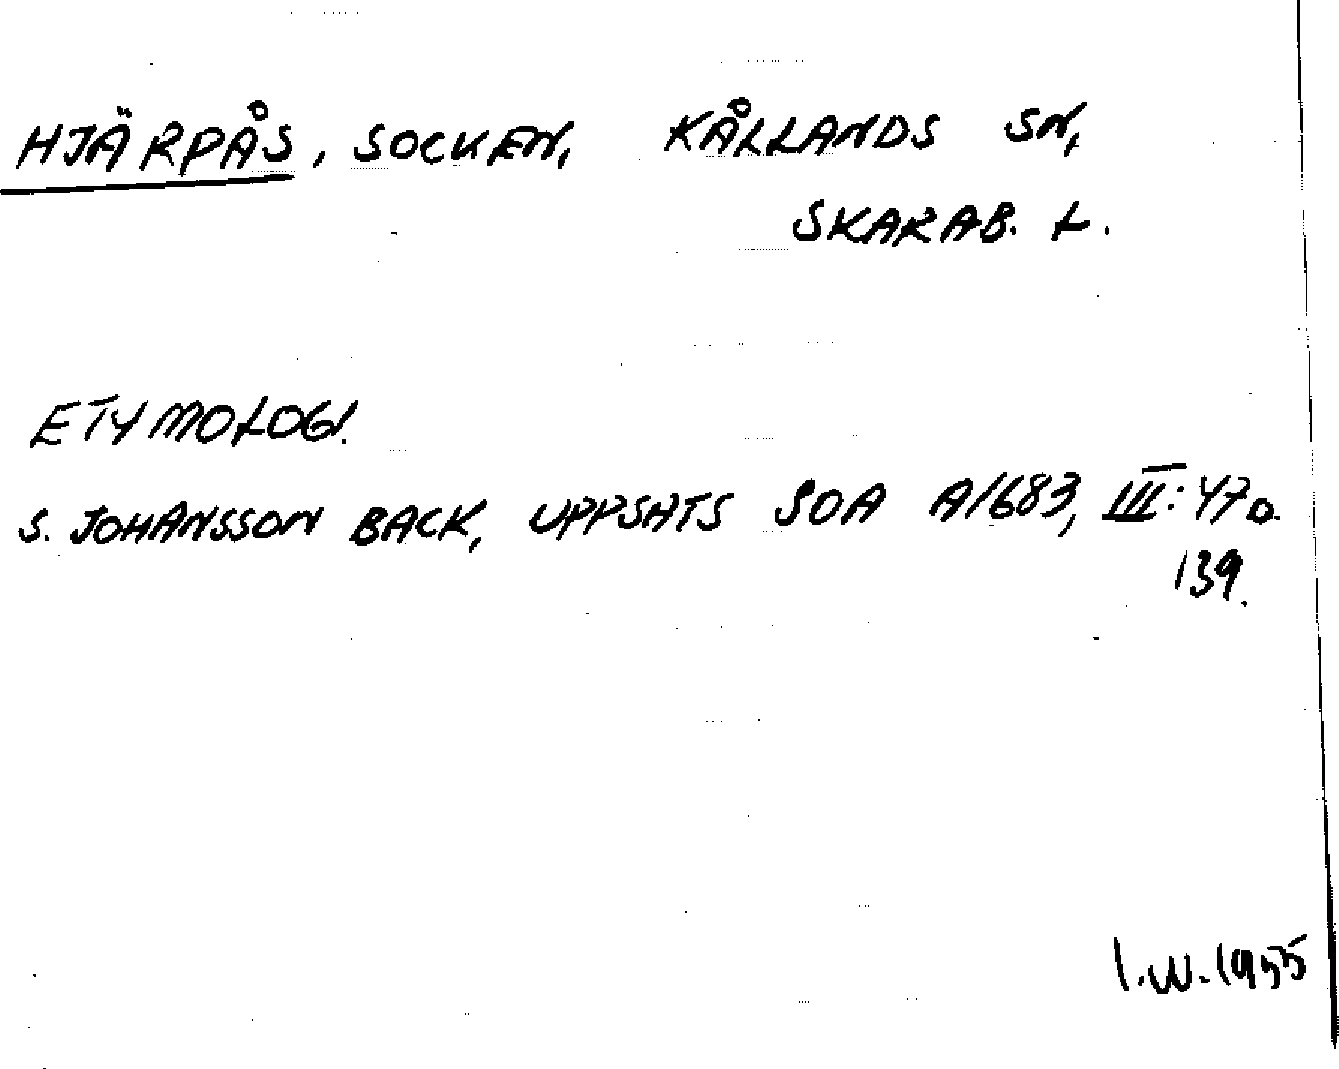 HJÄRPÅS, SOCKEN, KÅLLANDS SN,
SKARAB. L.
ETYMOLOGI.
S. JOHANSSON BACK, UPPSATS SOA A1683, III: 47 o.
139.
I.W. 1955